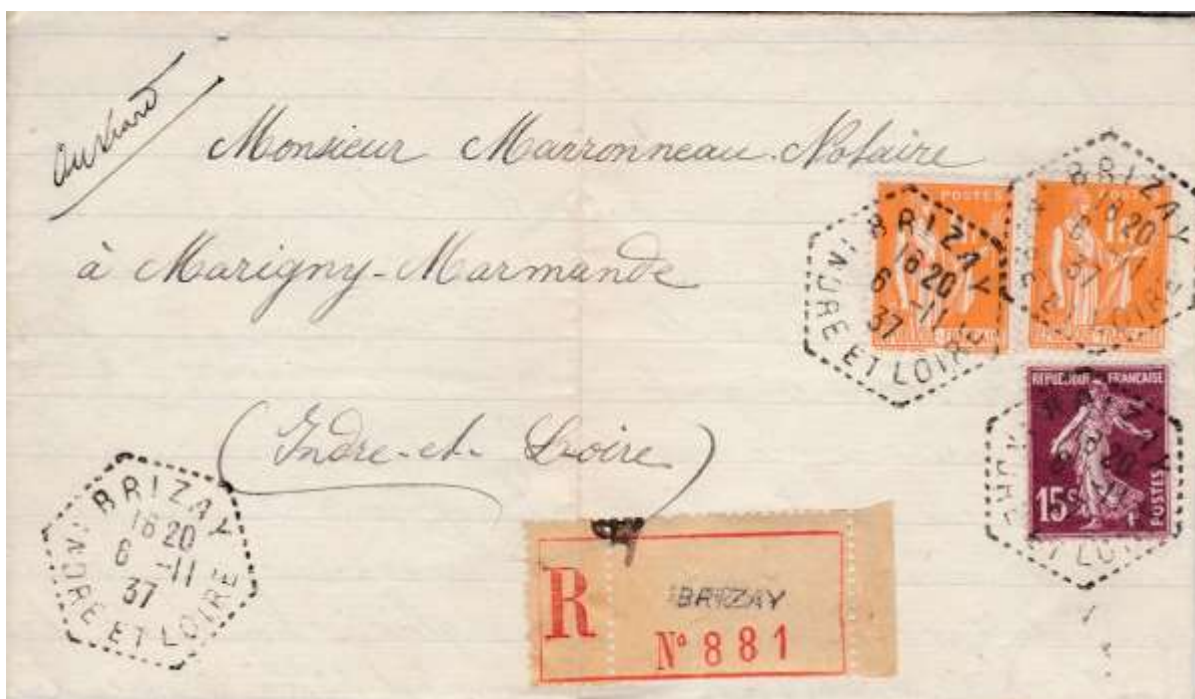 Monsieur Marronneau. Notaire
à Marigny-Marmande
(Indre-et-Loire)
POSTES
BRIZAY
16 20
6 -11
37
INDRE ET LOIRE
POSTES
1F
BRIZAY
16 20
6 -11
37
FRANÇAISE
15c
POSTES
BRIZAY
16 20
6 -11
37
INDRE ET LOIRE
R
BRIZAY
N° 881